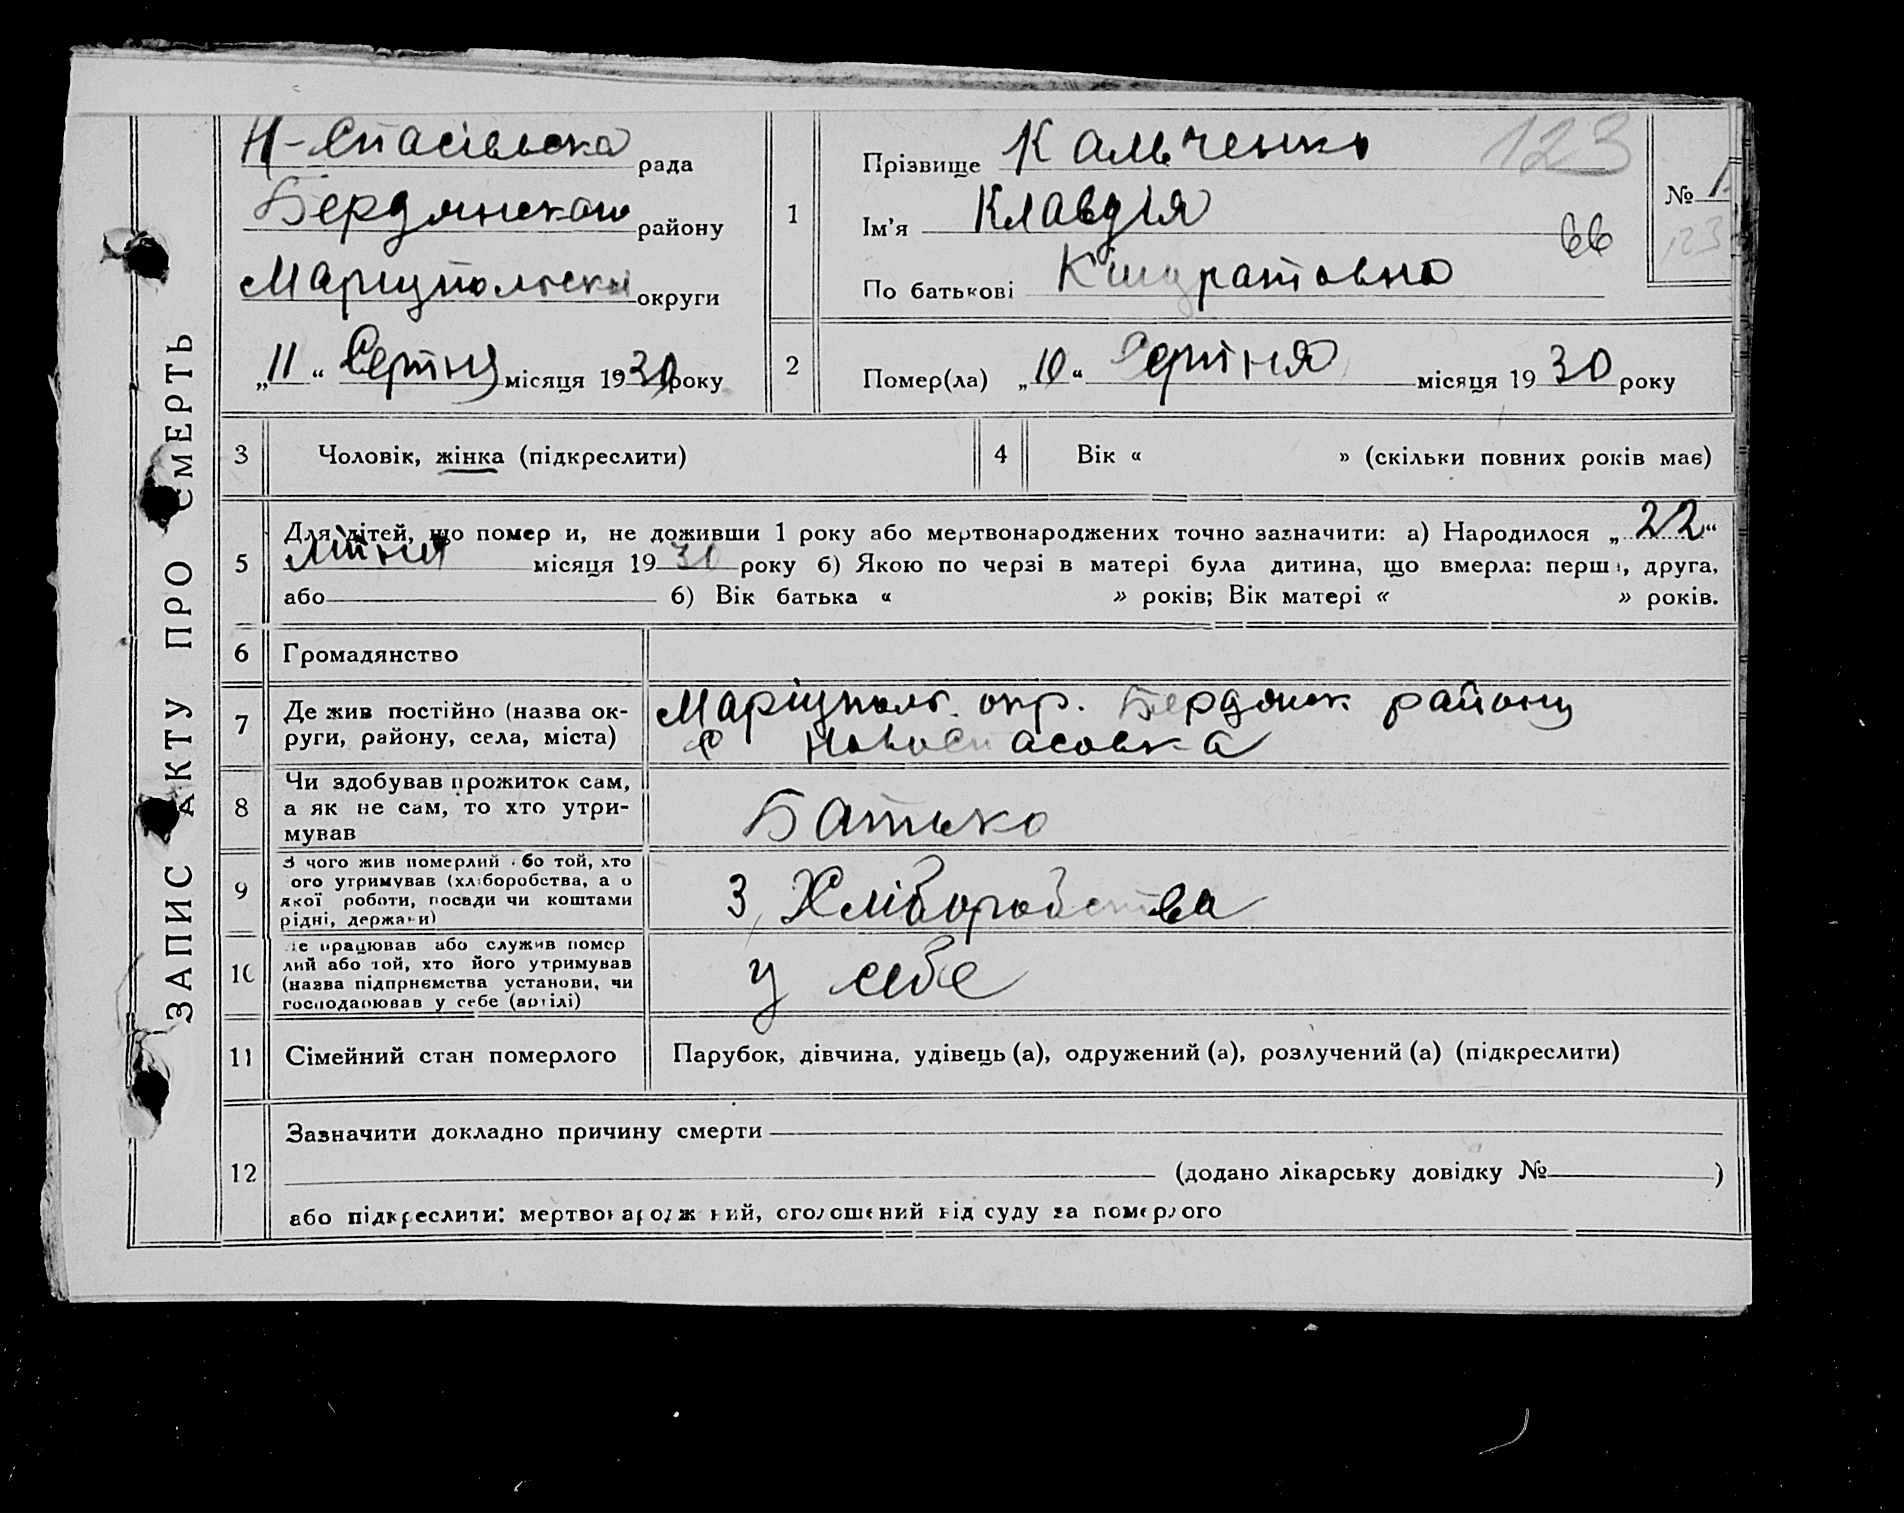 ЗАПИС АКТУ ПРО СМЕРТЬ
Н-Спасівська рада
Бердянсково району
Маріупольськи округи
„11“ Серпня місяця 1930 року
1
Прізвище Кальченко 123
Ім'я Клавдія 66
По батькові
№ 1
123
2
Помер(ла) „10“ Серпня місяця 1930 року
3 Чоловік, жінка (підкреслити)
4 Вік « » (скільки повних років має)
5
Для дітей, що помер и, не доживши 1 року або мертвонароджених точно зазначити: а) Народилося „22“
липня місяця 1930 року б) Якою по черзі в матері була дитина, що вмерла: перша, друга,
або 6) Вік батька « » років; Вік матері « » років.
6 Громадянство
7
Де жив постійно (назва ок-
руги, району, села, міста)
Маріуполь. окр. Бердянск району
с Новоспасовка
8
Чи здобував прожиток сам,
а як не сам, то хто утри-
мував
Батько
9
З чого жив померлий або той, хто
ого утримував (хліборобства, а о
якої роботи, посади чи коштами
рідні, держави)
З Хліборобства
10
Де працював або служив помер
лий або той, хто його утримував
(назва підприємства установи, чи
господарював у себе (артілі)
у себе
11 Сімейний стан померлого
Парубок, дівчина, удівець (а), одружений (а), розлучений (а) (підкреслити)
12
Зазначити докладно причину смерти
(додано лікарську довідку № )
або підкреслити: мертвонароджений, оголошений від суду за померлого